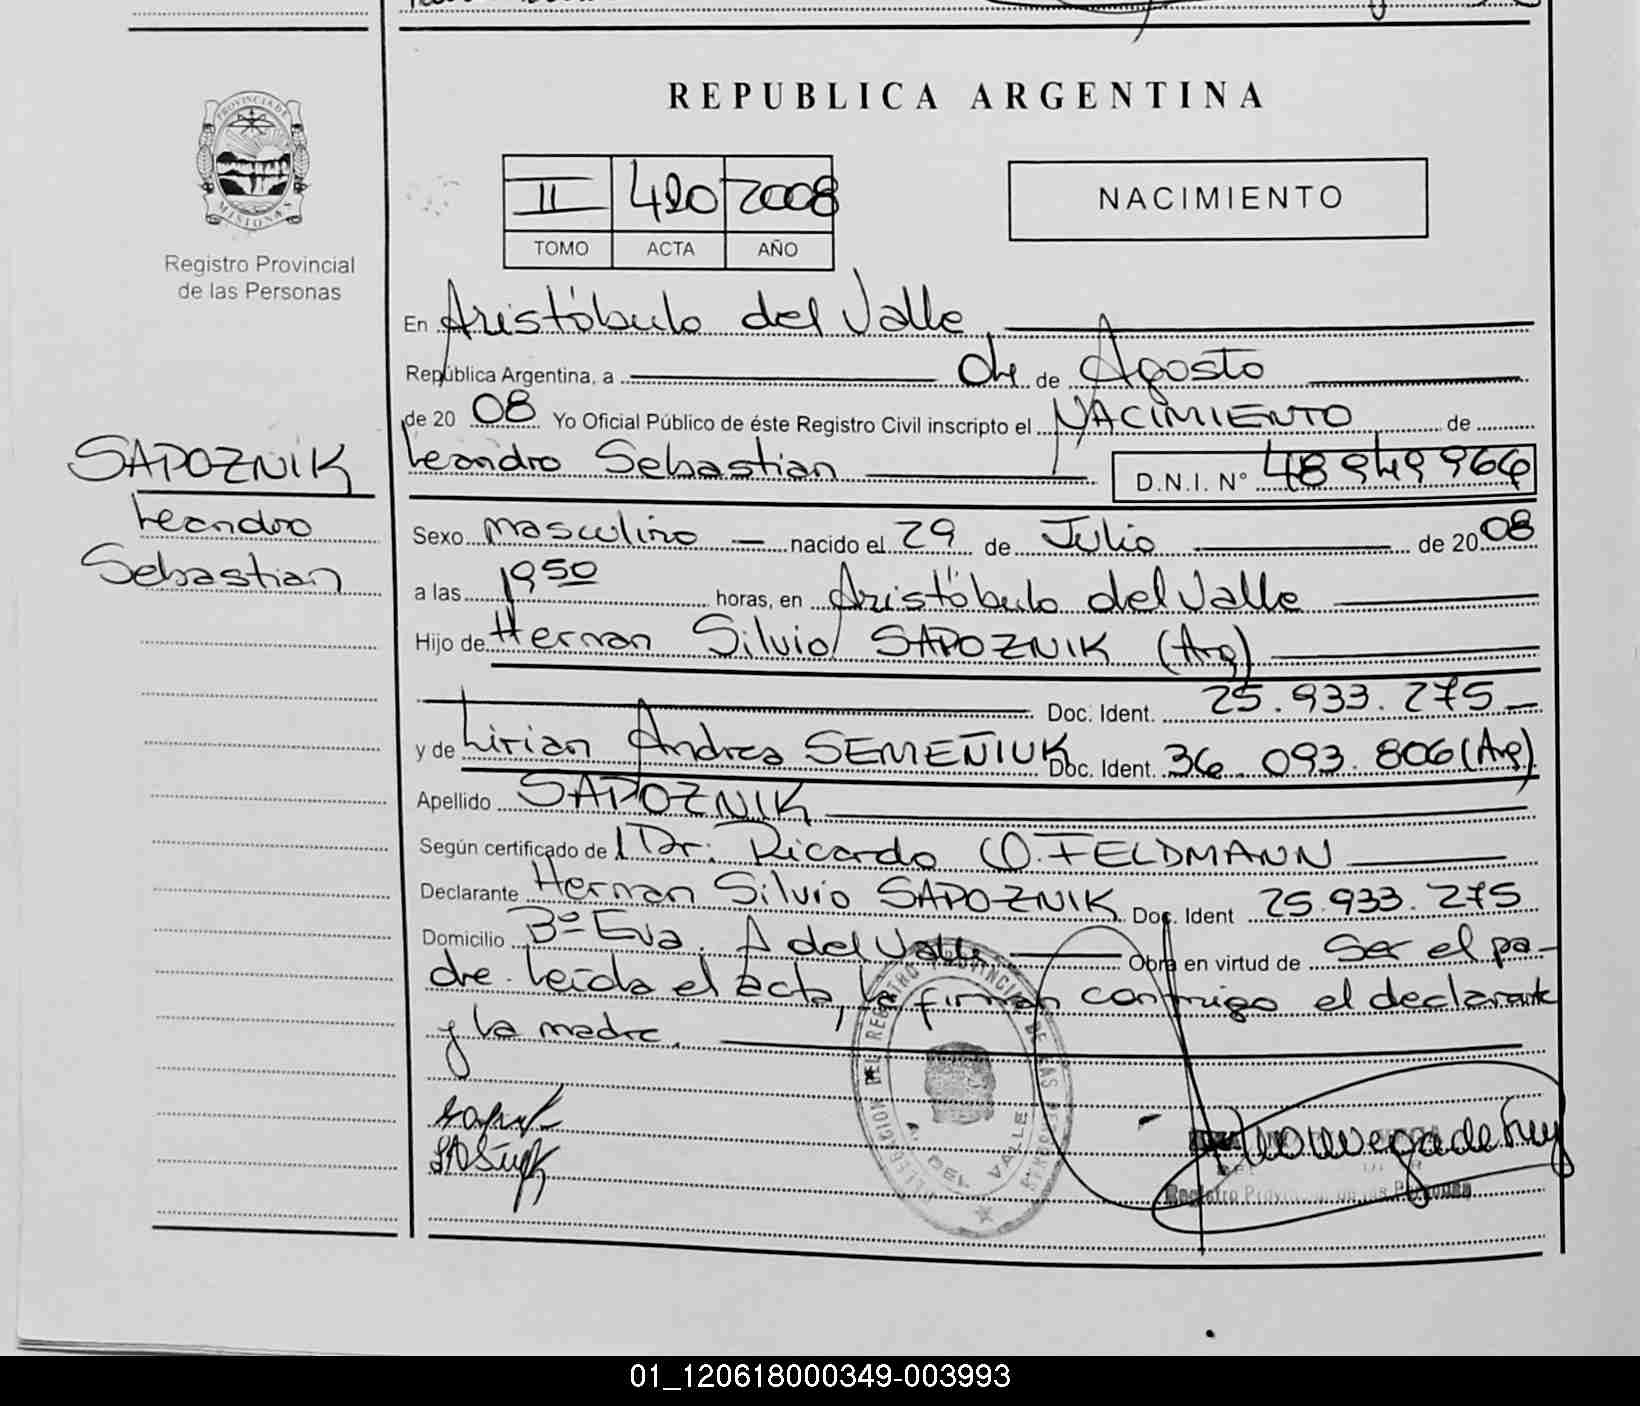 PROVINCIA DE
MISIONES
Registro Provincial
de las Personas
SAPOZNIK
Leandro
Sebastian
REPUBLICA ARGENTINA
II 420 2008
TOMO ACTA AÑO
NACIMIENTO
En Aristóbulo del Valle
República Argentina, a 04 de Agosto
de 20 08 Yo Oficial Público de éste Registro Civil inscripto el NACIMIENTO de
Leandro Sebastian D.N.I. N° 48949966
Sexo masculino nacido el 29 de Julio de 20 08
a las 19 50 horas, en Aristóbulo del Valle
Hijo de Hernan Silvio SAPOZNIK (Arg)
Doc. Ident. 25.933.275
y de Lirian Andrea SEMEÑIUK Doc. Ident. 36.093.806 (Arg)
Apellido SAPOZNIK
Según certificado de Dr. Ricardo O. FELDMANN
Declarante Hernan Silvio SAPOZNIK Doc. Ident 25.933.275
Domicilio Bº Eva. A del Valle Obra en virtud de Ser el pa-
dre. Leída el acta, la firman conmigo el declarante
y la madre.
DELEGACION DEL REGISTRO PROVINCIAL DE LAS PERSONAS
A. DEL VALLE
Registro Provincial de las Personas
01_120618000349-003993